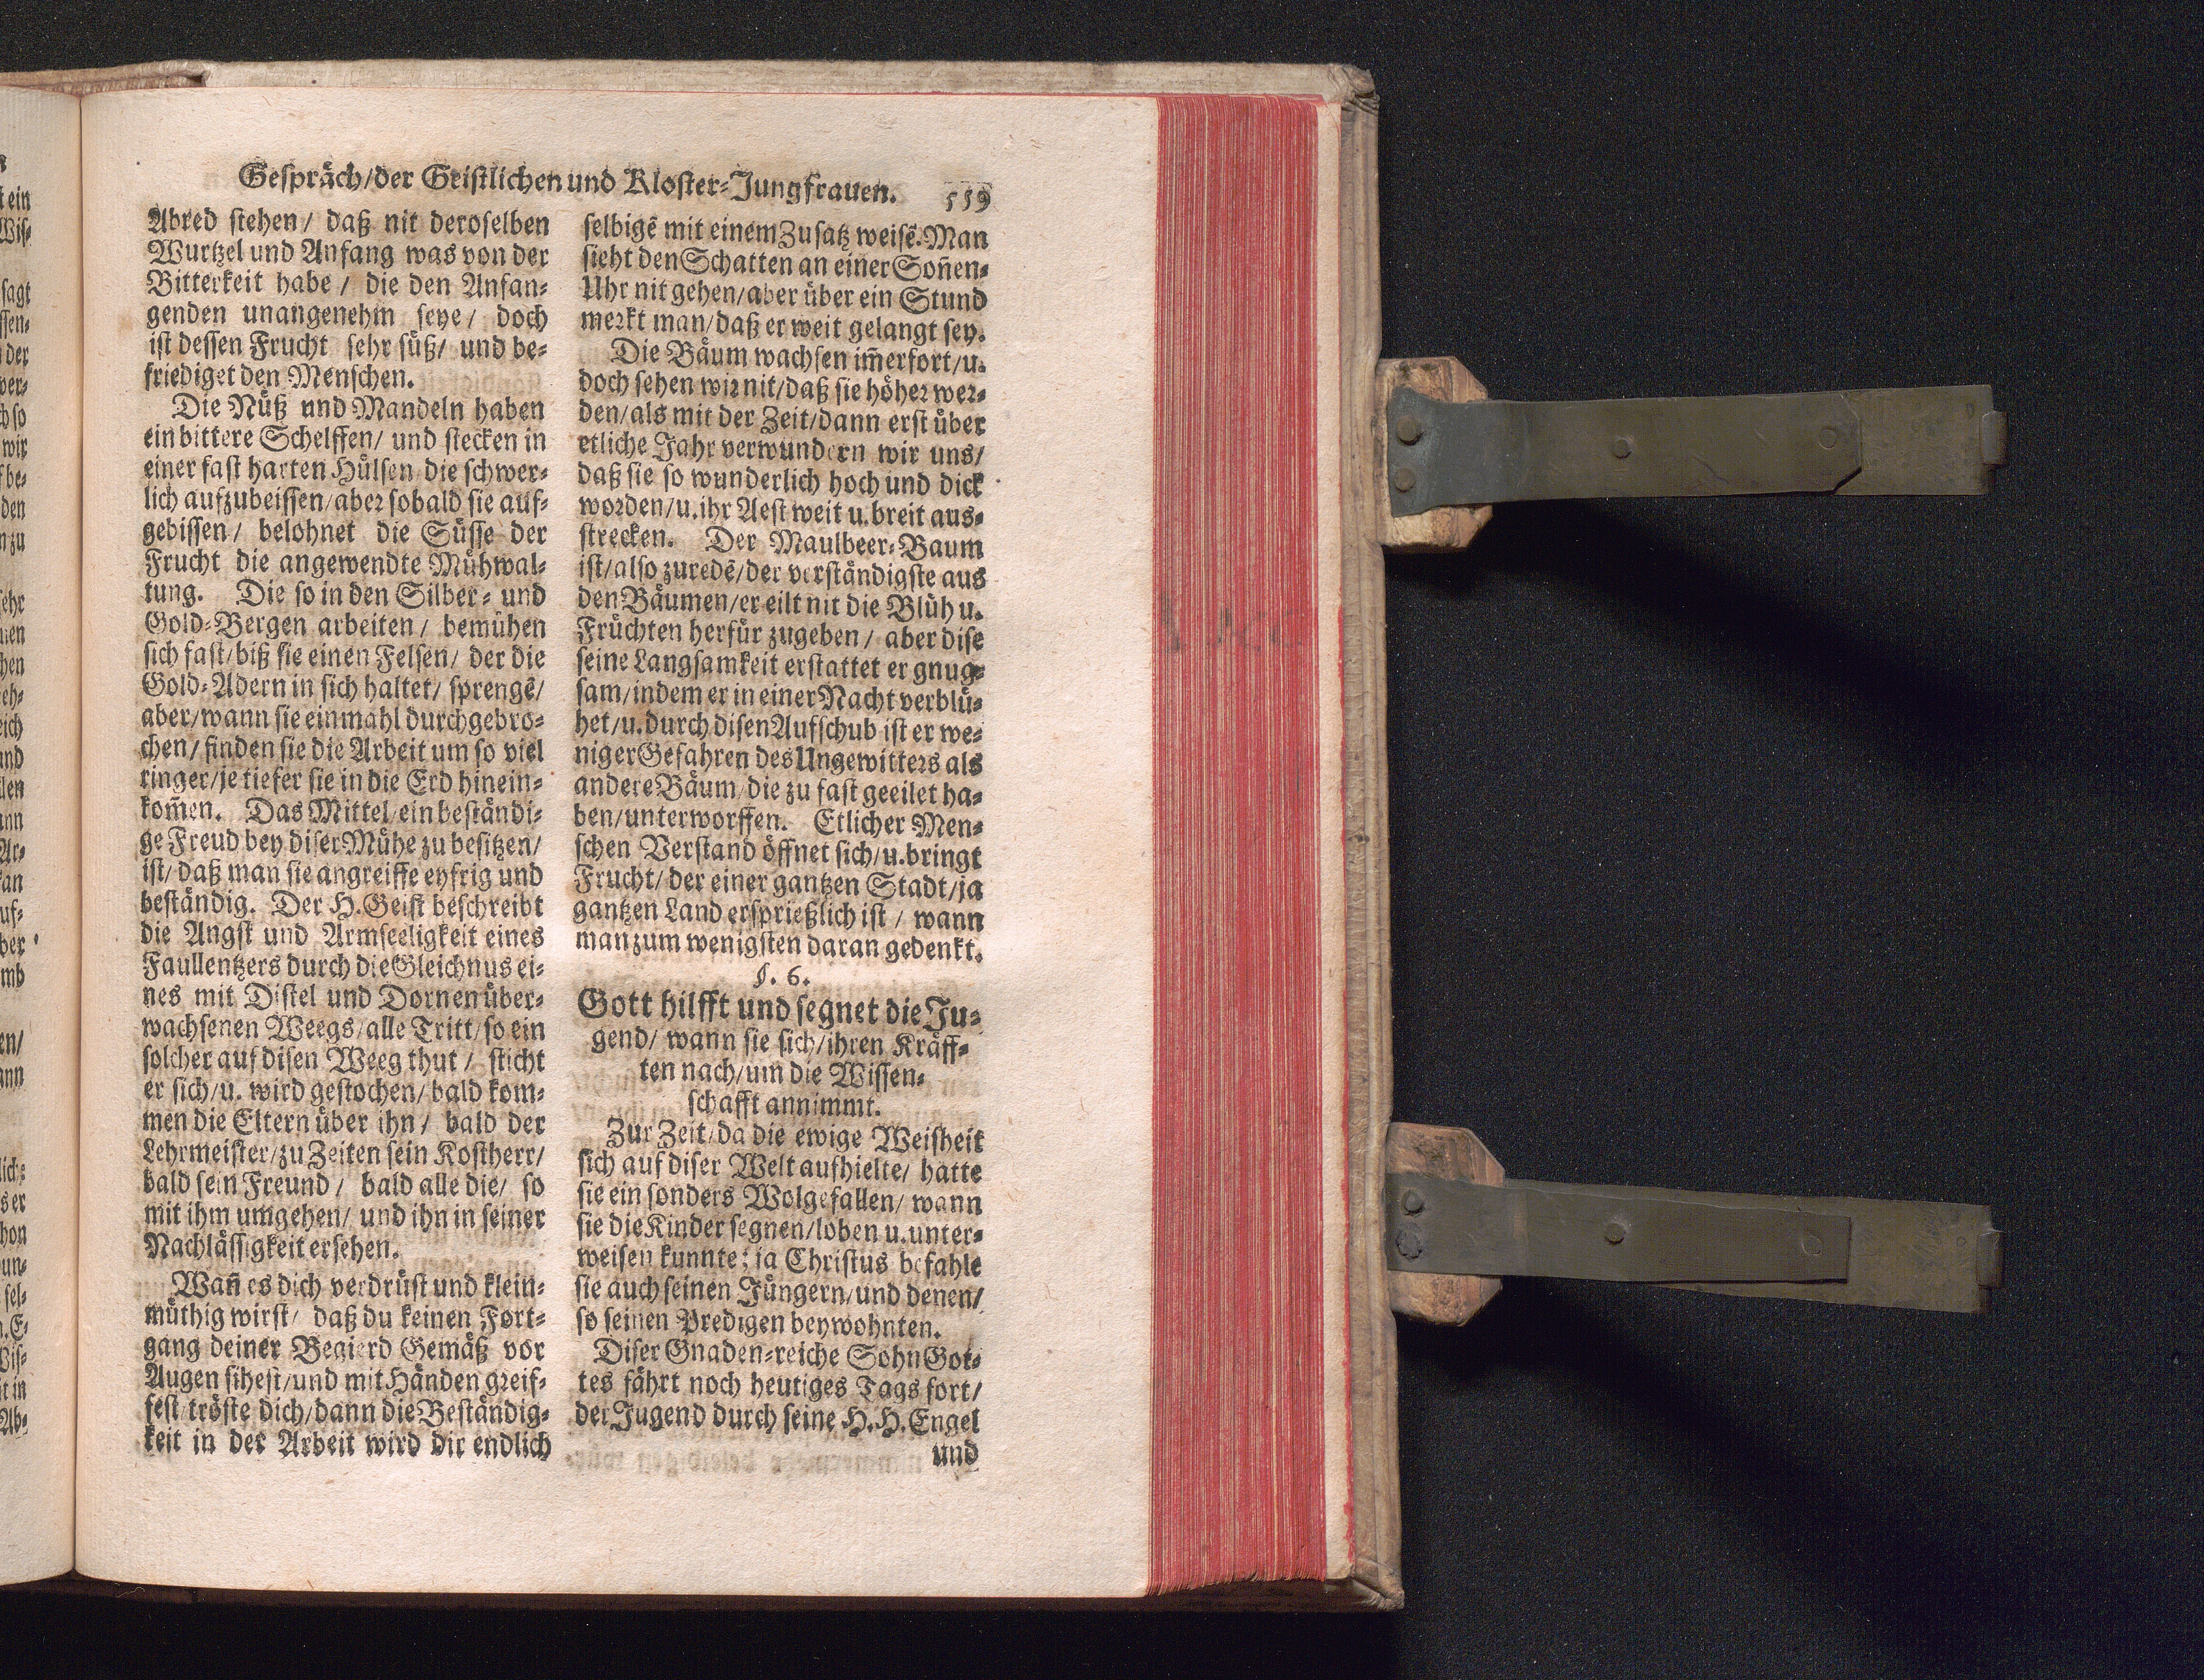 Gespräch/der Geistlichen und Kloster-Jungfrauen. 559
Abred stehen/ daß nit deroselben
Wurtzel und Anfang was von der
Bitterkeit habe/ die den Anfan-
genden unangenehm seye/ doch
ist dessen Frucht sehr süß/ und be-
friediget den Menschen.
Die Nüß und Mandeln haben
ein bittere Schelffen/ und stecken in
einer fast harten Hülsen/die schwer-
lich aufzubeissen/aber sobald sie auf-
gebissen/ belohnet die Süsse der
Frucht die angewendte Mühwal-
tung. Die so in den Silber- und
Gold-Bergen arbeiten/ bemühen
sich fast/biß sie einen Felsen/ der die
Gold-Adern in sich haltet/ sprengē/
aber/wann sie einmahl durchgebro-
chen/ finden sie die Arbeit um so viel
ringer/je tiefer sie in die Erd hinein-
kom̄en. Das Mittel/ein beständi-
ge Freud bey diser Mühe zu besitzen/
ist/ daß man sie angreiffe eyfrig und
beständig. Der H. Geist beschreibt
die Angst und Armseeligkeit eines
Faullentzers durch die Gleichnus ei-
nes mit Distel und Dornen über-
wachsenen Weegs/alle Tritt/so ein
solcher auf disen Weeg thut/ sticht
er sich/u. wird gestochen/ bald kom-
men die Eltern über ihn/ bald der
Lehrmeister/zu Zeiten sein Kostherr/
bald sein Freund/ bald alle die/ so
mit ihm umgehen/ und ihn in seiner
Nachlässigkeit ersehen.
Wan̄ es dich verdrüst und klein-
müthig wirst/ daß du keinen Fort-
gang deiner Begierd Gemäß vor
Augen sihest/und mit Händen greif-
fest/tröste dich/dann die Beständig-
keit in der Arbeit wird dir endlich
selbigē mit einem Zusatz weisē. Man
sieht den Schatten an einer Son̄en-
Uhr nit gehen/aber über ein Stund
merkt man/daß er weit gelangt sey.
Die Bäum wachsen im̄erfort/u.
doch sehen wir nit/daß sie höher wer-
den/als mit der Zeit/dann erst über
etliche Jahr verwundern wir uns/
daß sie so wunderlich hoch und dick
worden/u. ihr Aest weit u. breit aus-
strecken. Der Maulbeer-Baum
ist/also zuredē/der verständigste aus
den Bäumen/er eilt nit die Blüh u.
Früchten herfür zugeben/ aber dise
seine Langsamkeit erstattet er gnug-
sam/indem er in einer Nacht verblü-
het/u. durch disen Aufschub ist er we-
niger Gefahren des Ungewitters als
andere Bäum/die zu fast geeilet ha-
ben/unterworffen. Etlicher Men-
schen Verstand öffnet sich/u. bringt
Frucht/ der einer gantzen Stadt/ja
gantzen Land ersprießlich ist/ wann
man zum wenigsten daran gedenkt.
§. 6.
Gott hilfft und segnet die Ju-
gend/ wann sie sich/ihren Kräff-
ten nach/um die Wissen-
schafft annimmt.
Zur Zeit/da die ewige Weisheit
sich auf diser Welt aufhielte/ hatte
sie ein sonders Wolgefallen/ wann
sie die Kinder segnen/loben u. unter-
weisen kunnte; ja Christus befahle
sie auch seinen Jüngern/und denen/
so seinen Predigen beywohnten.
Diser Gnaden-reiche Sohn Got-
tes fährt noch heutiges Tags fort/
der Jugend durch seine H. H. Engel
und